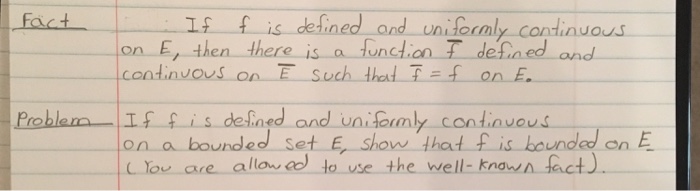 Fact If f is defined and uniformly continuous
on E, then there is a function f̅ defined and
continuous on E̅ such that f̅ = f on E.
Problem If f is defined and uniformly continuous
on a bounded set E, show that f is bounded on E
(You are allowed to use the well-known fact).